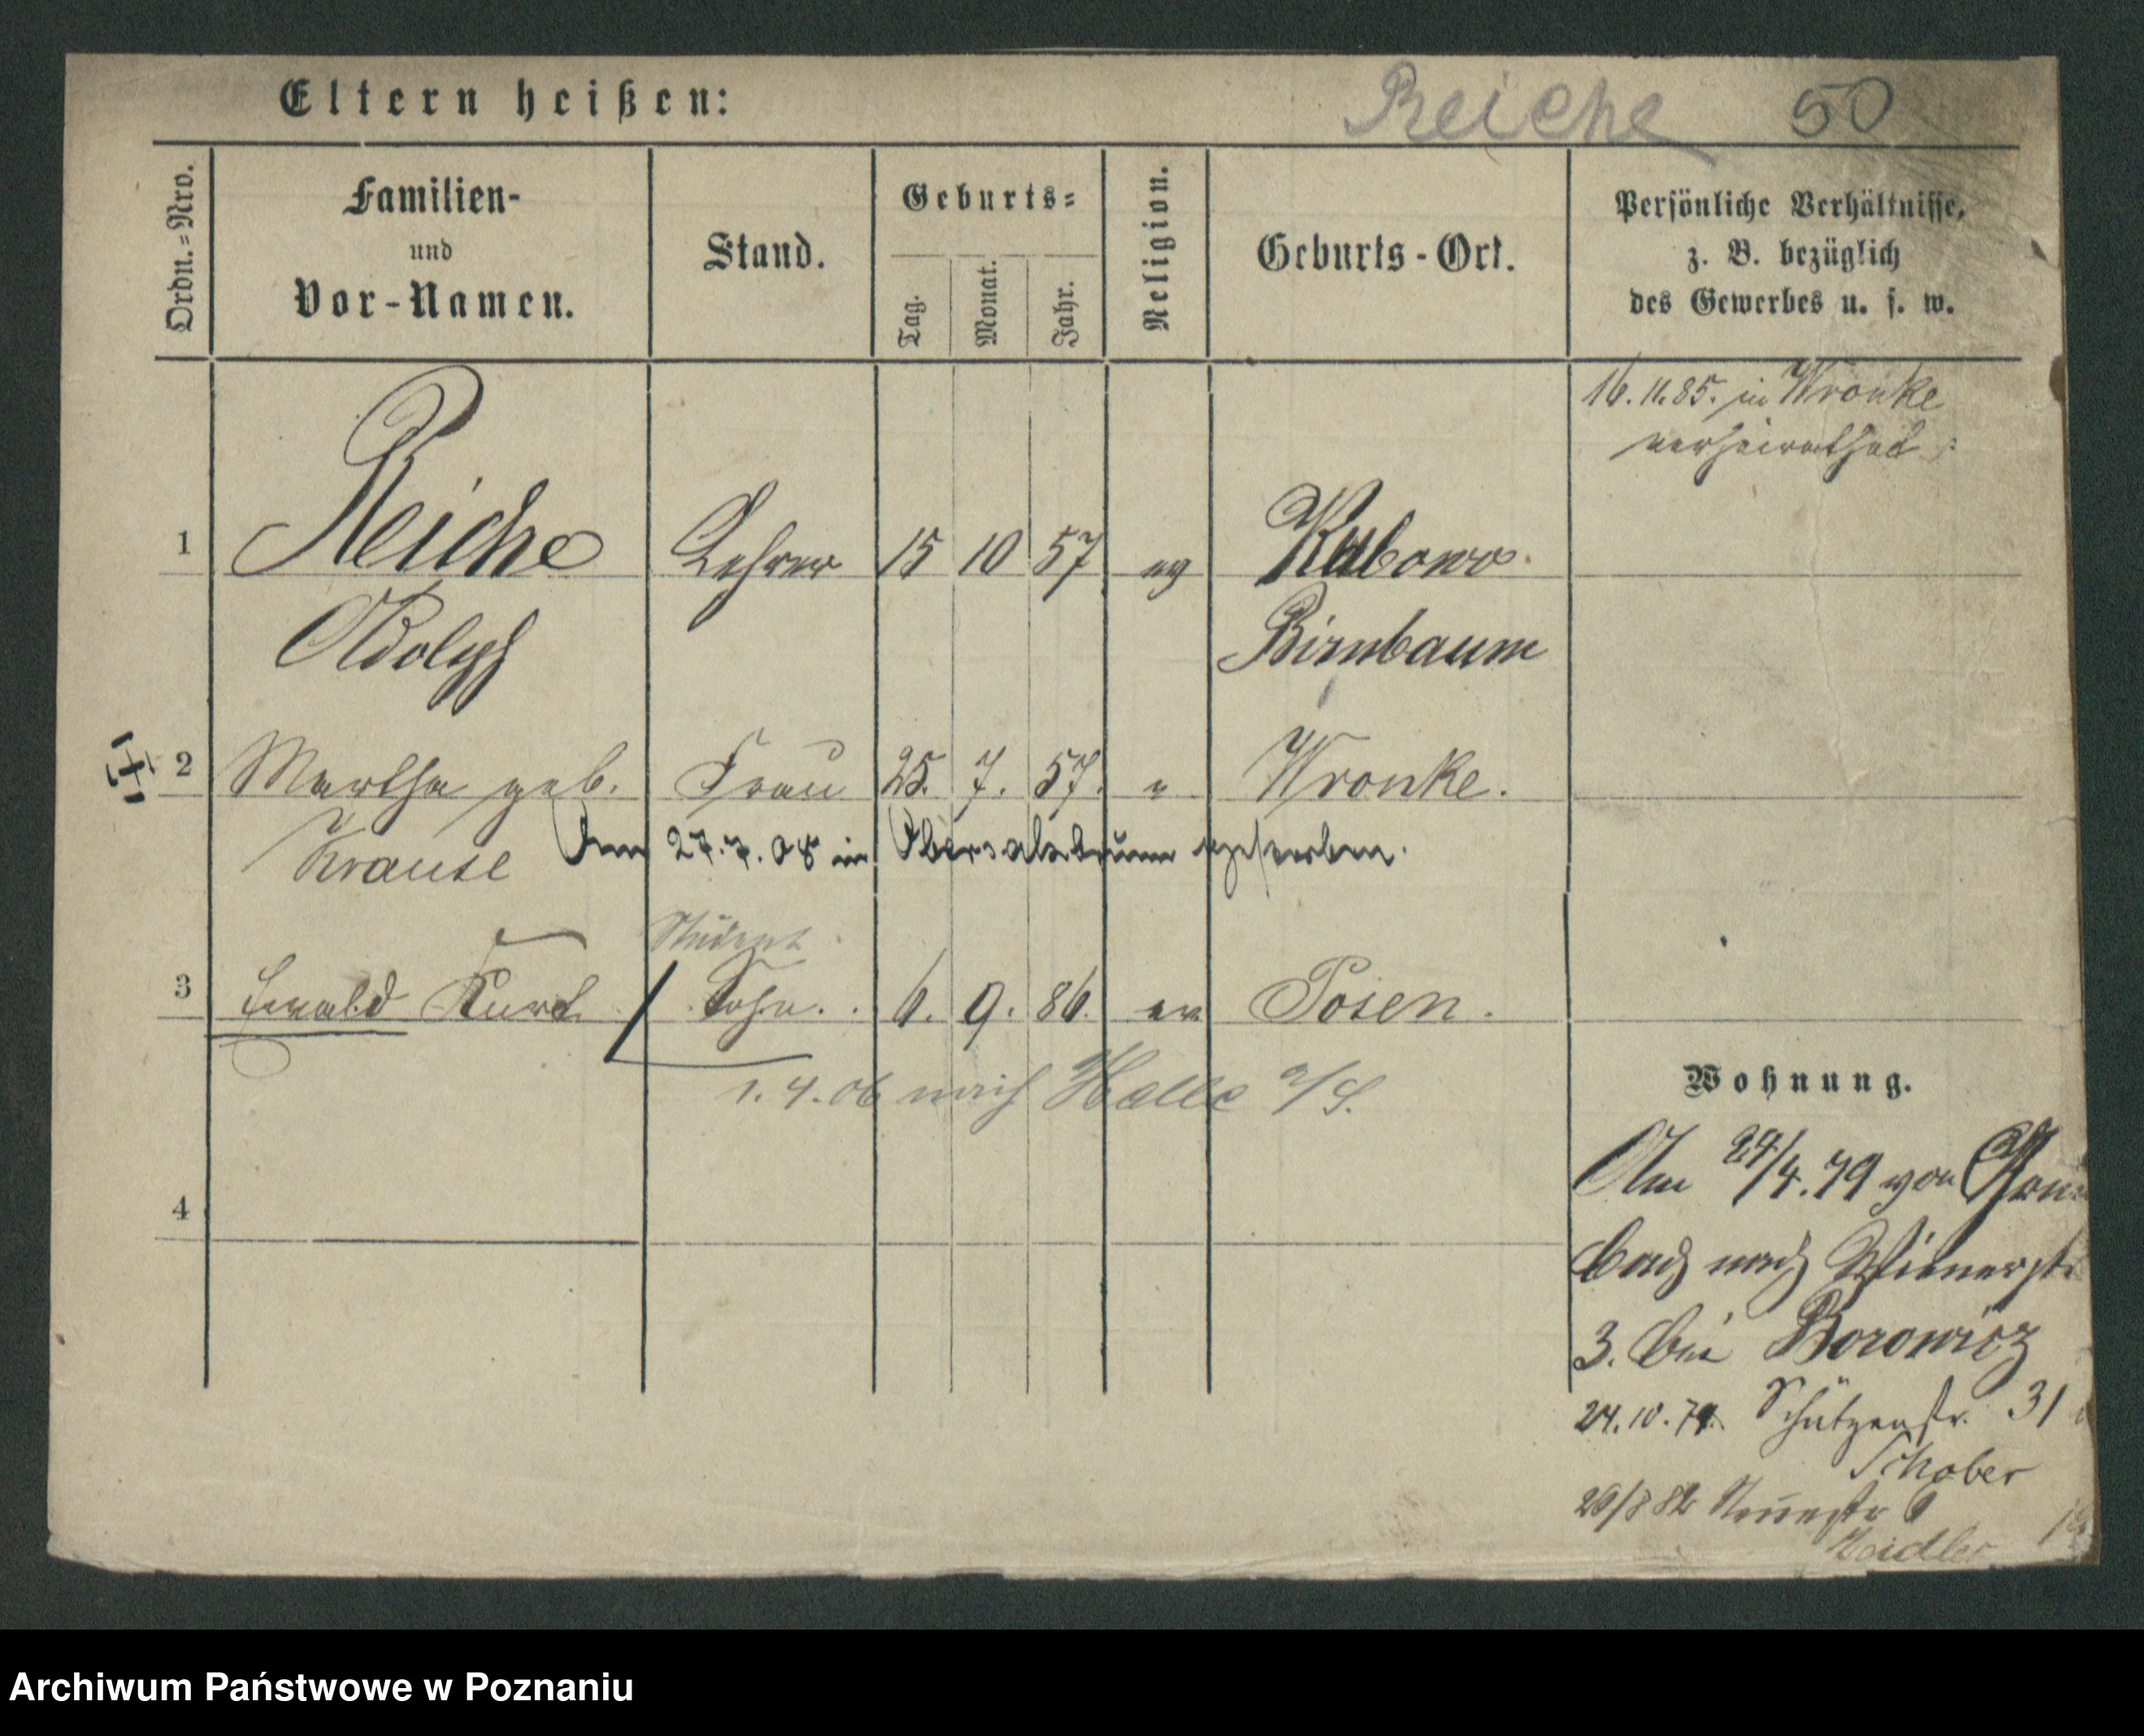 Eltern heißen:
Reiche 50
Ordn.=Nro.
Familien-
und
Vor-Namen.
Stand.
Geburts=
Tag.
Monat.
Jahr.
Religion.
Geburts-Ort.
Persönliche Verhältnisse,
z. B. bezüglich
des Gewerbes u. s. w.
16. 11. 85. in Wronke
verheirathet
1 Reiche Lehrer 15 10 57 ev
Adolph Birnbaum
2 Martha geb. Frau 25. 7. 57. " Wronke.
Krause Am 27. 7. 08 in Obersalzbrunn gestorben.
Student
3 Ewald Kurt Sohn. 6. 9. 86. ev Posen.
1. 4. 06 nach Halle a/S.
Wohnung.
4
Am 24/4. 79 von
nach Wienerstr
3. bei Borowicz
24. 10. 79. Schützenstr. 31
Schober
Zeidler
Archiwum Państwowe w Poznaniu